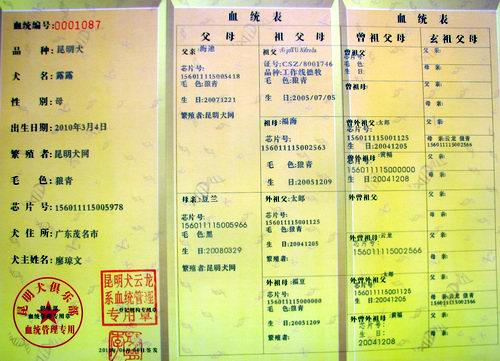 血统编号:0001087
品 种:昆明犬
犬 名:露露
性 别:母
出生日期:2010年3月4日
繁 殖 者:昆明犬网
毛 色:狼青
芯 片 号:156011115005978
犬 住 所:广东茂名市
犬主姓名:廖琼文
昆明犬俱乐部
血统管理专用
昆明犬云龙
系血统管理
专用章
血统表
父母
祖父母
父亲:海迪
芯片号:
156011115005418
毛 色:狼青
生 日:20071221
繁殖者:昆明犬网
母亲:豆兰
芯片号:
156011115005966
毛 色:黑
生 日:20080329
繁殖者:昆明犬网
祖父
证号:CSZ/8001746
品种:工作线德牧
毛 色:狼青
生 日:2005/07/05
祖母:福海
芯片号:
156011115002563
毛 色:狼青
生 日:20051209
外祖父:太郎
芯片号:
156011115001125
毛 色:狼青
生 日:20041205
外祖母:福豆
芯片号:
156011115000000
毛 色:狼青
生 日:20051209
血统表
曾祖父母
玄祖父母
曾祖父
芯片号:
毛 色:
生 日:
曾祖母:
曾外祖父:太郎
芯片号:
156011115001125
生 日:20041205
曾外祖母:黄幅
芯片号:
156011115000000
生 日:20041208
外曾祖父:
外曾祖母:云龙
芯片号:
156011115002566
生 日:
外外曾祖父:太郎
芯片号:
156011115001125
生 日:20041205
外外曾祖母:黄福
芯片号:
生 日:20041208
父亲:
母亲:
父亲:
母亲:云龙 狼青
156011115002566
父亲:
母亲:
父亲:
母亲:
父亲:
母亲:
父亲:
母亲:云龙 狼青
156011115002566
父亲:
母亲: